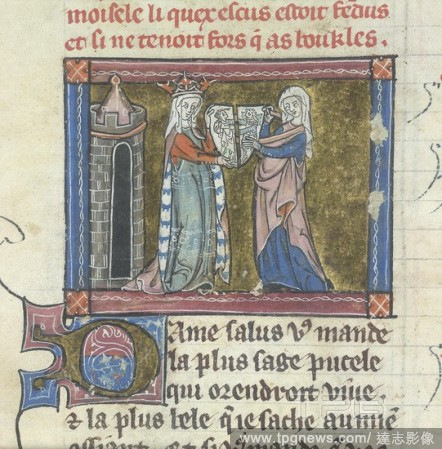 moisele li quex escus estoit fendus
et si ne tenoit fors q̄ as boukles.
Dame salus vꝰ mande
la plus sage pucele
qui orendroit viue.
⁊ la plus bele q̄ ie sache au mien
www.tpgnews.com/ 達志影像